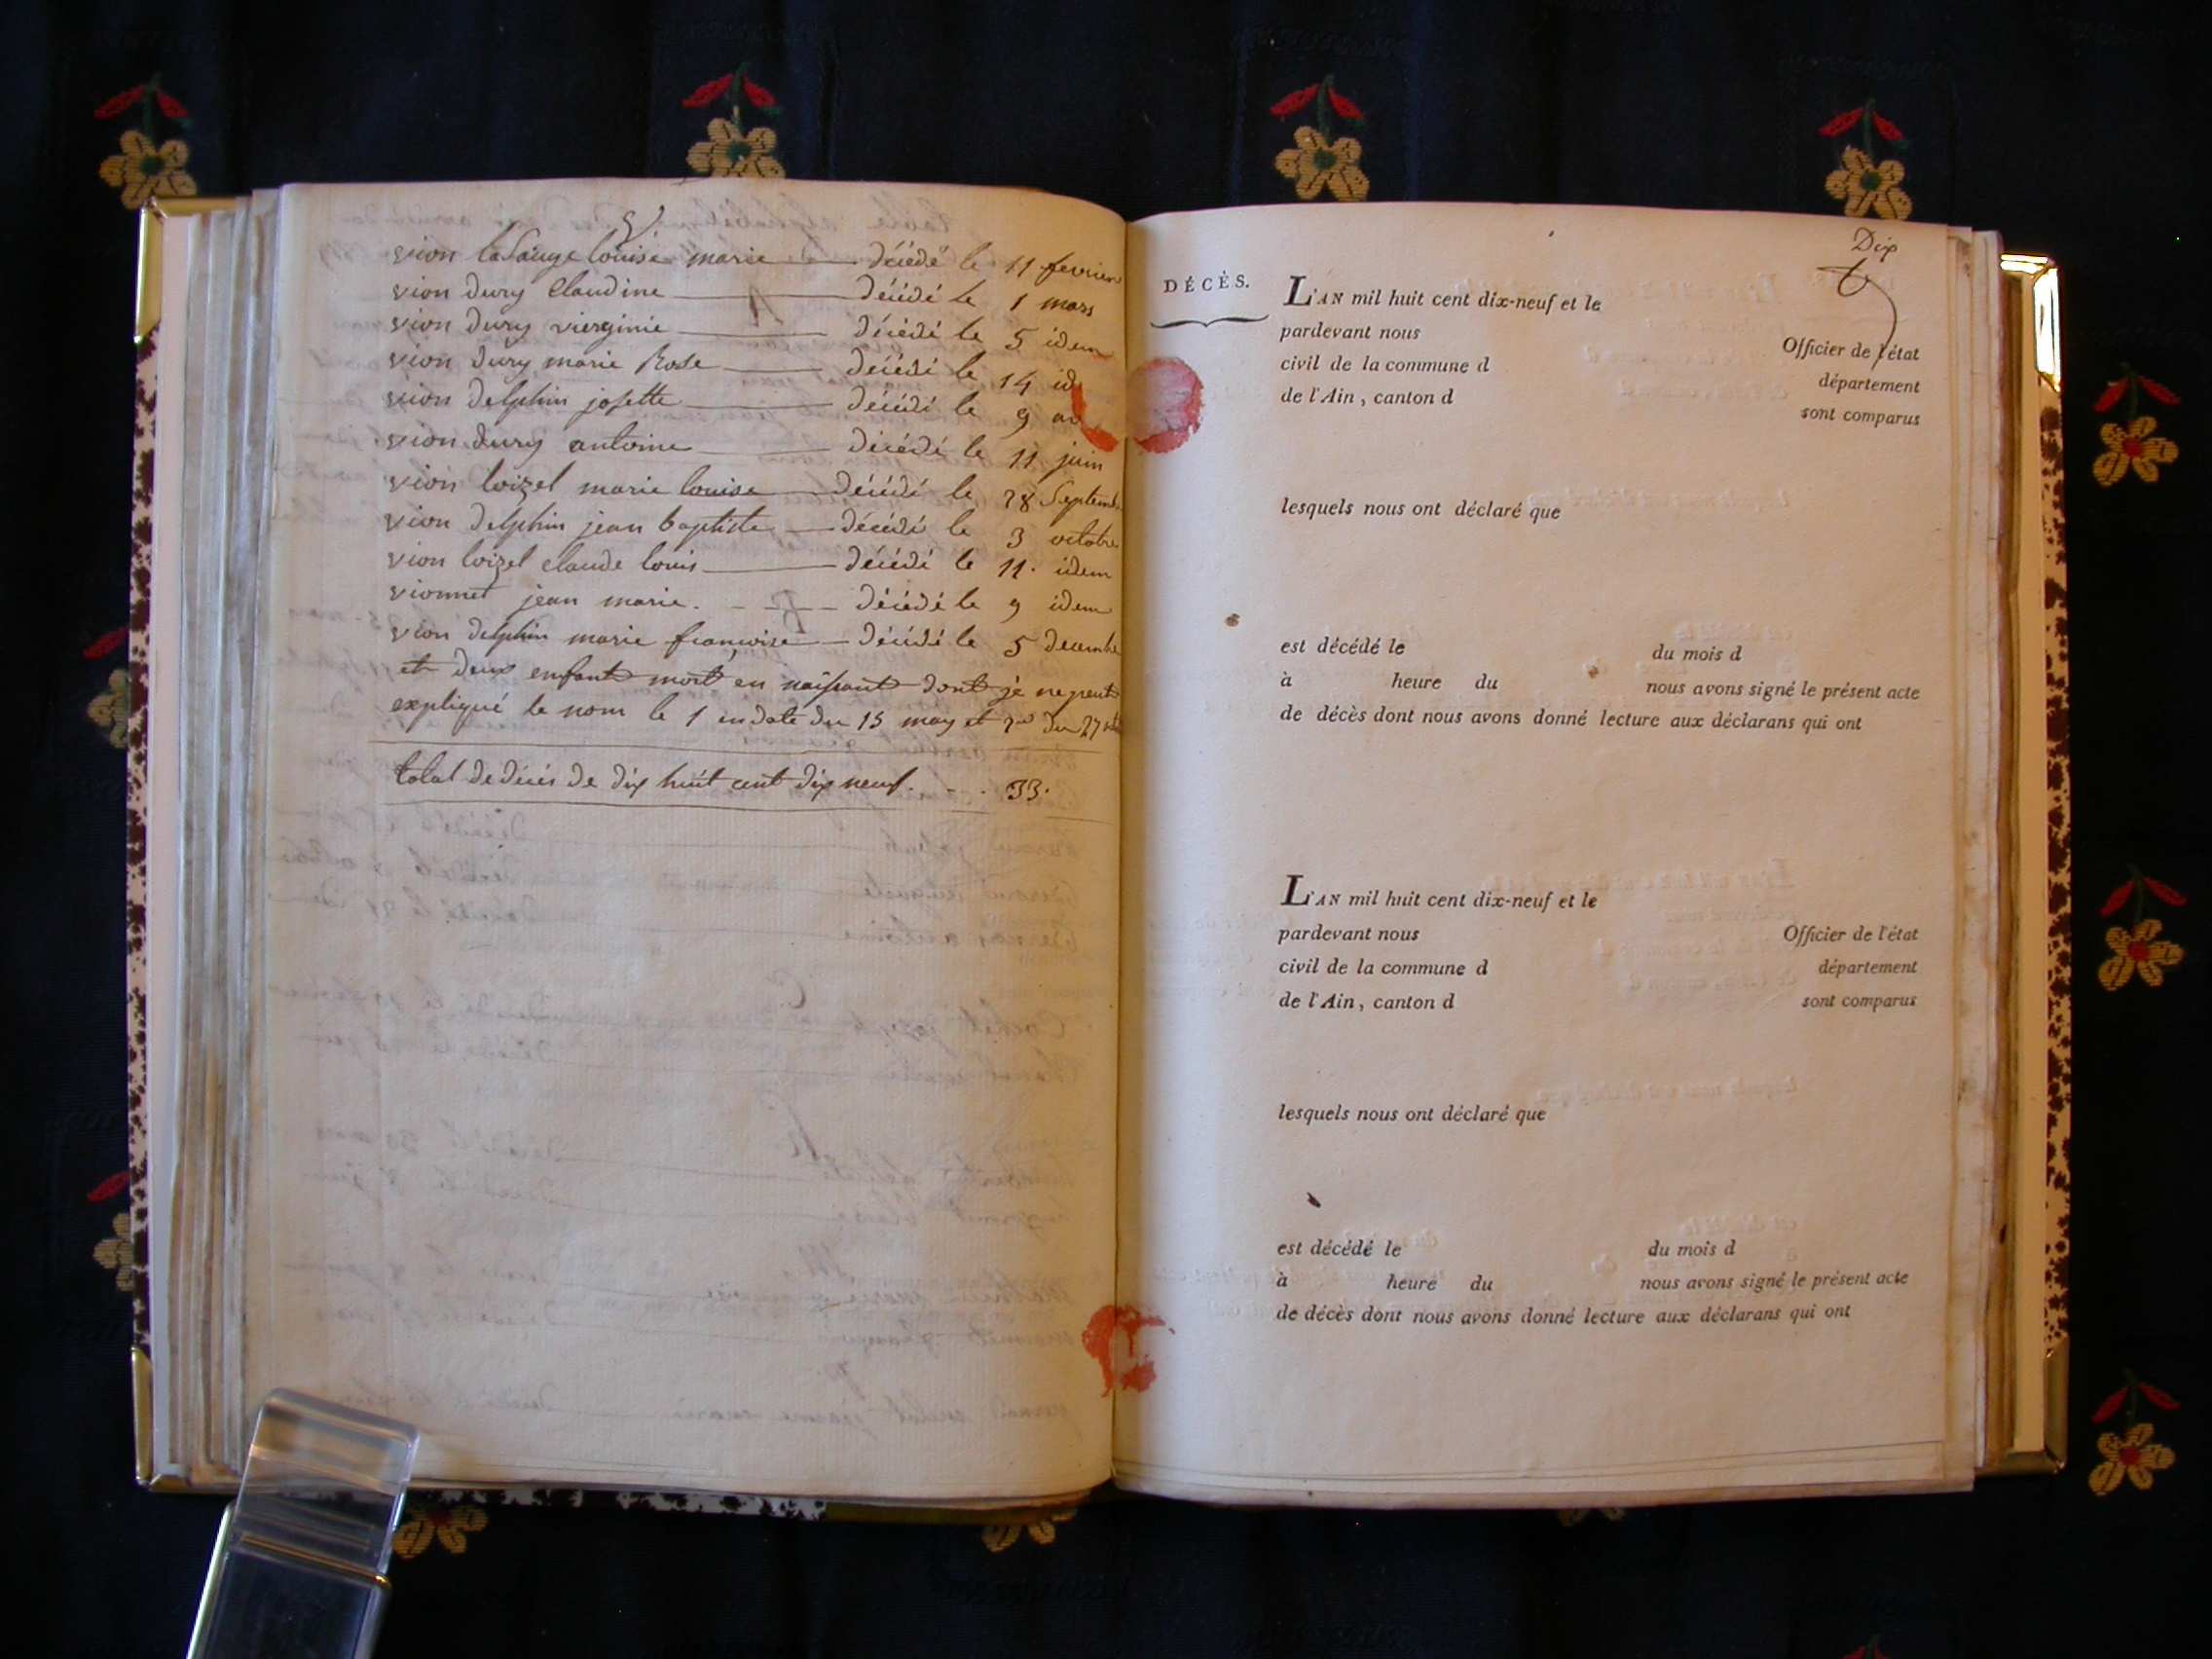 V
vion lasauge louise marie décédé le 11 fevrier
vion dury claudine décédé le 1 mars
vion dury vierginie décédé le 5 idem
vion dury marie Rose décédé le 14 id
vion delphin josette décédé le 9 av
vion dury antoine décédé le 11 juin
vion loizel marie louise décédé le 28 Septemb
vion delphin jean baptiste décédé le 3 octobre
vion loizel claude louis décédé le 11. idem
vionnet jean marie. décédé le 9 idem
vion delphin marie francoise décédé le 5 decembre
et deux enfant mort en naissant dont je ne peut
expliqué le nom le 1 en date du 15 may et 2me du 27
total de décés de dix huit cent dix neuf. 33.
Dix
DÉCÈS.
L'AN mil huit cent dix-neuf et le
pardevant nous Officier de l'état
civil de la commune d département
de l'Ain, canton d sont comparus
lesquels nous ont déclaré que
est décédé le du mois d
à heure du nous avons signé le présent acte
de décès dont nous avons donné lecture aux déclarans qui ont
L'AN mil huit cent dix-neuf et le
pardevant nous Officier de l'état
civil de la commune d département
de l'Ain, canton d sont comparus
lesquels nous ont déclaré que
est décédé le du mois d
à heure du nous avons signé le présent acte
de décès dont nous avons donné lecture aux déclarans qui ont